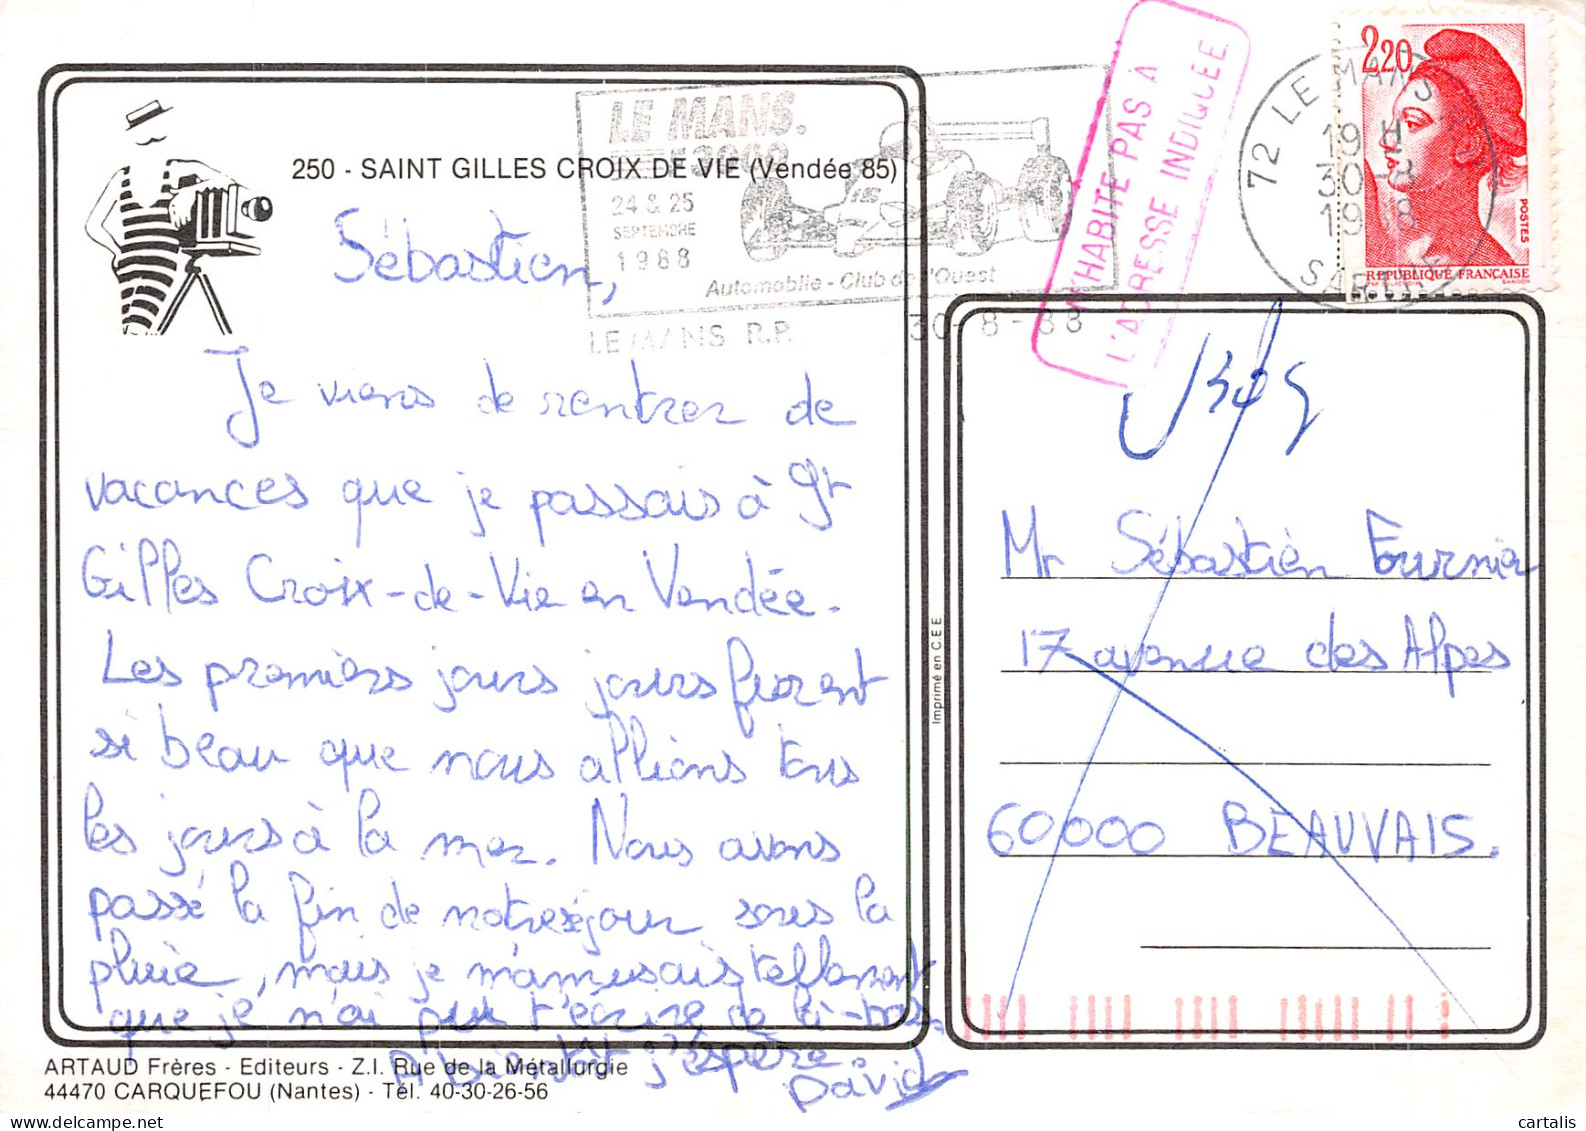 250 - SAINT GILLES CROIX DE VIE (Vendée 85)
LE MANS.
24 & 25
SEPTEMBRE
1988
Automobile - Club de l'Ouest
LE MANS R.P.
30-8-88
N'HABITE PAS À
L'ADRESSE INDIQUÉE
72 LE MANS
19 H
30-8
1988
SARTHE
2,20
POSTES
REPUBLIQUE FRANÇAISE
GANDON
Sébastien,
Je viens de rentrer de
vacances que je passais à St
Gilles Croix-de-Vie en Vendée.
Les premiers jours jours furent
si beau que nous allions tous
les jours à la mer. Nous avons
passé la fin de notre séjour sous la
pluie, mais je m'amusais tellement
que je n'ai pu t'écrire de là-bas.
A bientôt j'espère.
David
Mr Sébastien Fournier
17 avenue des Alpes
60000 BEAUVAIS.
Imprimé en C.E.E
ARTAUD Frères - Editeurs - Z.I. Rue de la Métallurgie
44470 CARQUEFOU (Nantes) - Tél. 40-30-26-56
cartalis